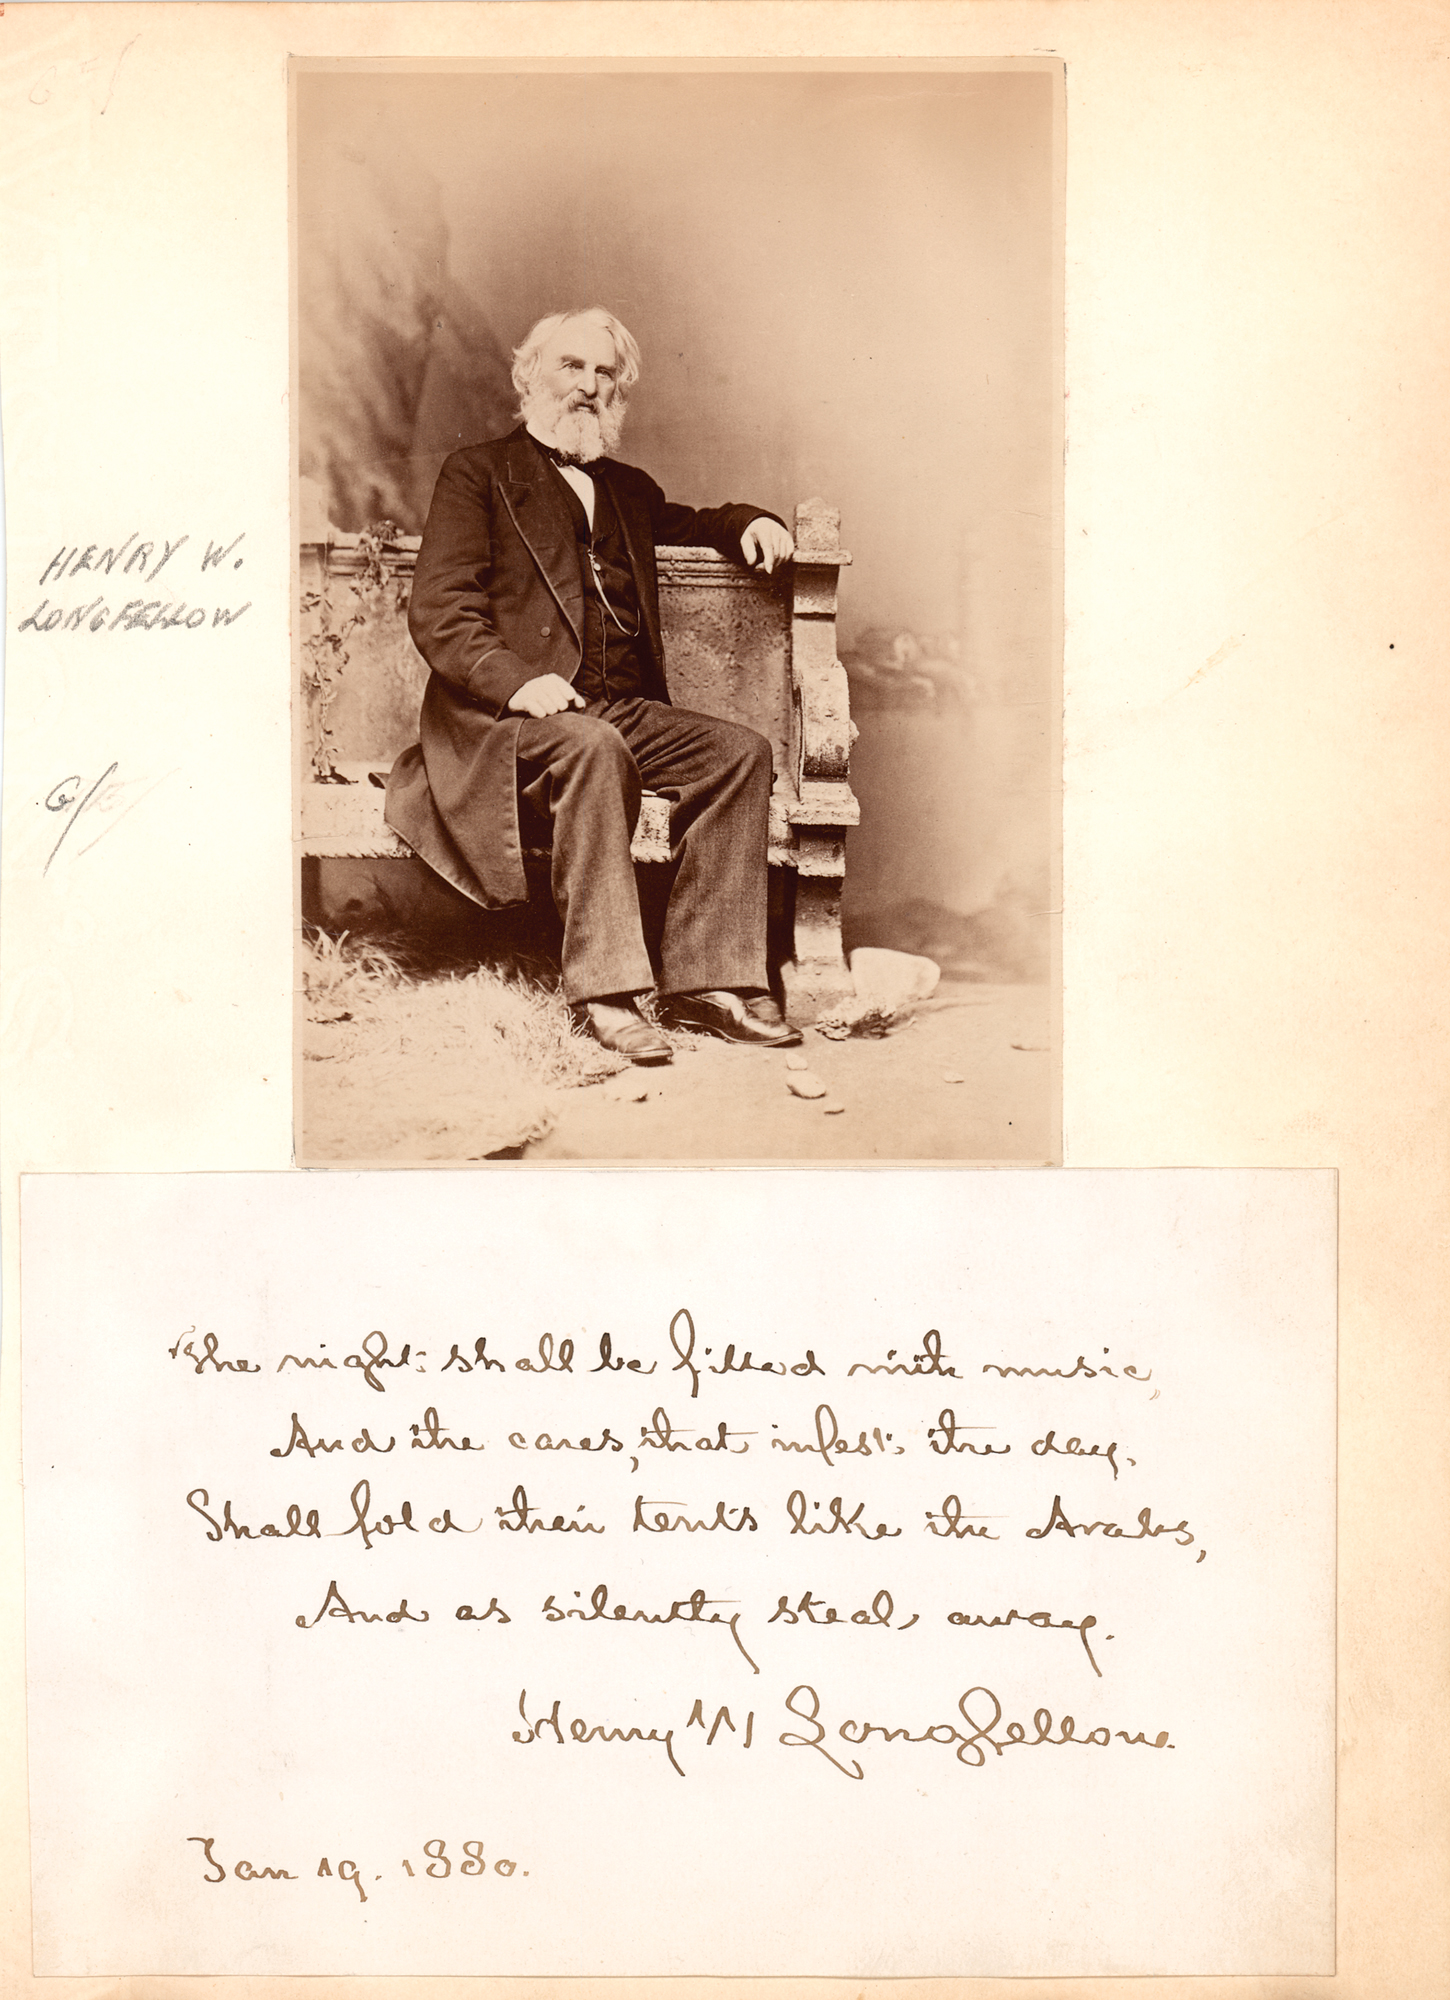 HENRY W.
LONGFELLOW
G/
The night shall be filled with music,
And the cares, that infest the day,
Shall fold their tents like the Arabs,
And as silently steal away.
Henry W Longfellow.
Jan 19. 1880.